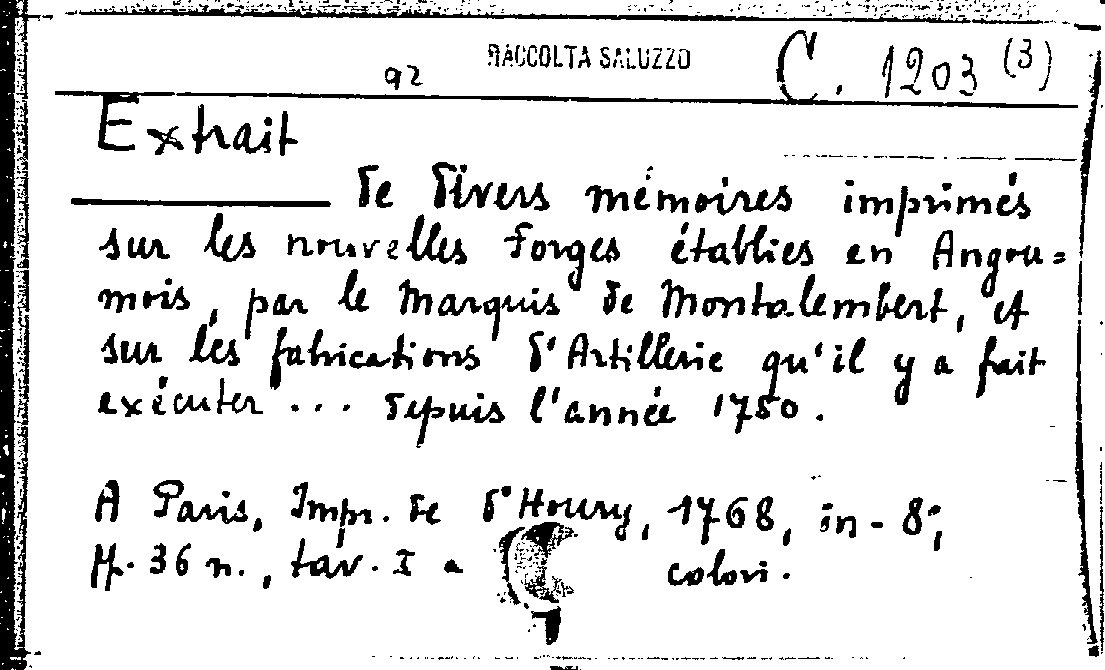 RACCOLTA SALUZZO
92 C. 1203 (3)
Extrait
de divers mémoires imprimés
sur les nouvelles forges établies en Angou=
mois, par le Marquis de Montalembert, et
sur les fabrications d'Artillerie qu'il y a fait
exécuter ... depuis l'année 1750.
A Paris, Impr. de d'Houry, 1768, in-8°,
pp. 36 n., tav. I a colori.